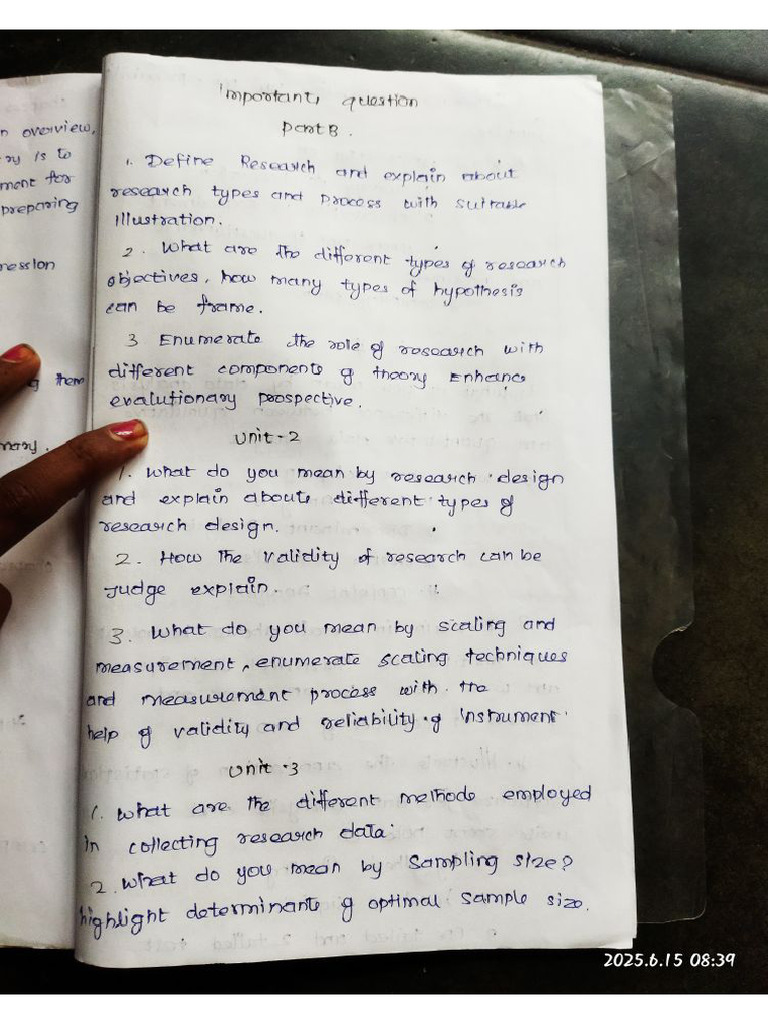 Important question
Part B.
1. Define Research and explain about
research types and process with suitable
Illustration.
2. What are the different types of research
objectives, how many types of hypothesis
can be frame.
3 Enumerate the role of research with
different components of theory Enhance
evalutionary prospective.
Unit-2
1. What do you mean by research design
and explain about different types of
research design.
2. How the validity of research can be
Judge explain.
3. What do you mean by scaling and
measurement, enumerate scaling techniques
and measurement process with the
help of validity and reliability of instrument.
Unit-3
1. What are the different methods employed
in collecting research data.
2. What do you mean by sampling size?
highlight determinants of optimal sample size.
n overview,
ry is to
ment for
preparing
ression
g them
mary.
2025.6.15 08:39